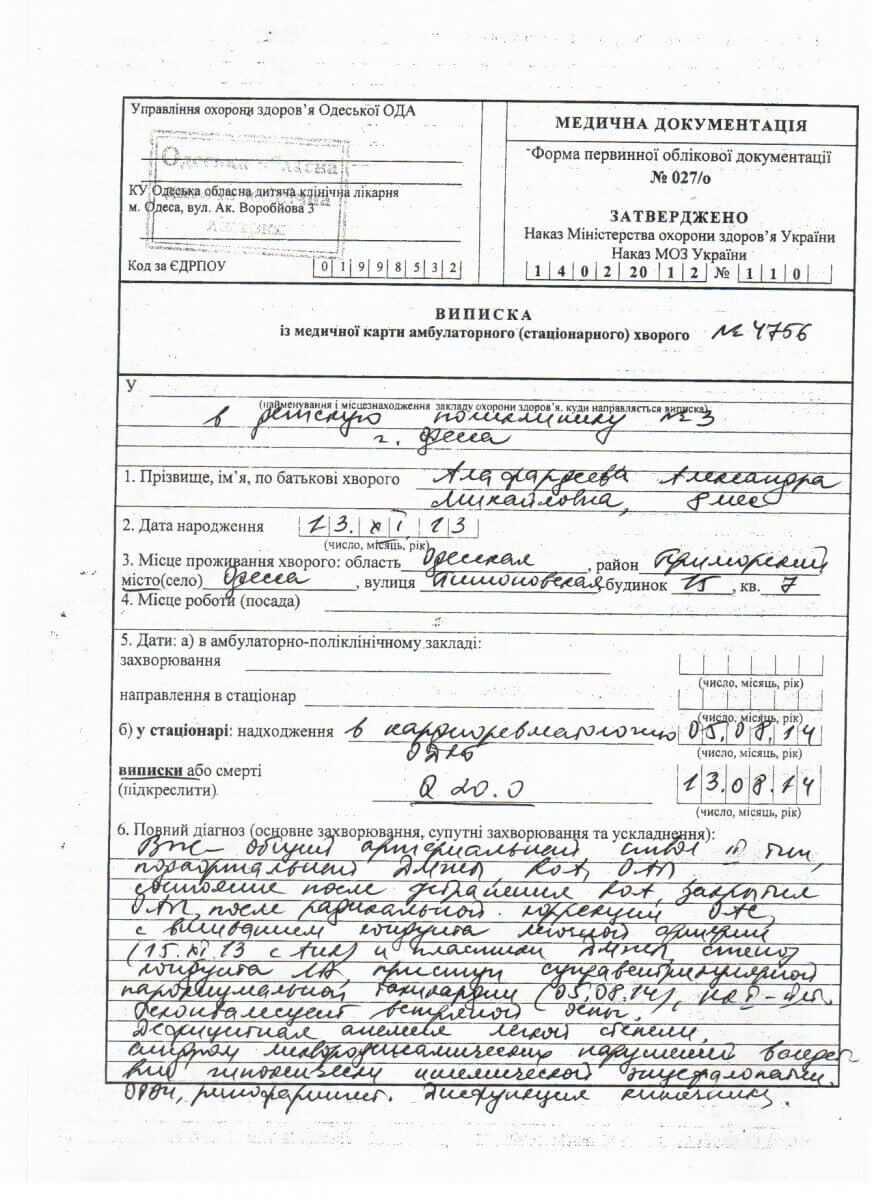 Управління охорони здоров'я Одеської ОДА
Одеська обласна
дитяча клінічна
лікарня
КУ Одеська обласна дитяча клінічна лікарня
м. Одеса, вул. Ак. Воробйова 3
Код за ЄДРПОУ 0 1 9 9 8 5 3 2
МЕДИЧНА ДОКУМЕНТАЦІЯ
Форма первинної облікової документації
№ 027/о
ЗАТВЕРДЖЕНО
Наказ Міністерства охорони здоров'я України
Наказ МОЗ України
1 4 0 2 2 0 1 2 № 1 1 0
ВИПИСКА
із медичної карти амбулаторного (стаціонарного) хворого № 4756
У
(найменування і місцезнаходження закладу охорони здоров'я, куди направляється виписка)
в детскую поликлинику № 3
г. Одесса
1. Прізвище, ім'я, по батькові хворого Александра
Михайловна, 8 мес
2. Дата народження 13. XI. 13
(число, місяць, рік)
3. Місце проживання хворого: область Одесская, район Приморский
місто(село) Одесса, вулиця будинок 15, кв. 7
4. Місце роботи (посада)
5. Дати: а) в амбулаторно-поліклінічному закладі:
захворювання
(число, місяць, рік)
направлення в стаціонар
(число, місяць, рік)
б) у стаціонарі: надходження в кардиоревматологию 05.08.14
ОДКБ
(число, місяць, рік)
виписки або смерті
(підкреслити) Q 20.0 13.08.14
(число, місяць, рік)
6. Повний діагноз (основне захворювання, супутні захворювання та ускладнення):
ВПС - общий артериальный ствол тип,
ДМЖП, КоА, ОАП
состояние после устранения КоА, закрытия
ОАП, после радикальной коррекции ОАС
с вшиванием кондуита легочной артерии
(15.XI.13 с АИК) и пластики ДМЖП, стеноз
кондуита ЛА, приступ суправентрикулярной
пароксизмальной тахикардии (05.08.14),
Реконвалесцент ветряной оспы.
Дефицитная анемия легкой степени,
синдром ликвородинамических нарушений
гипоксически ишемической энцефалопатии.
ОРВИ, ринофарингит. Дисфункция кишечника.